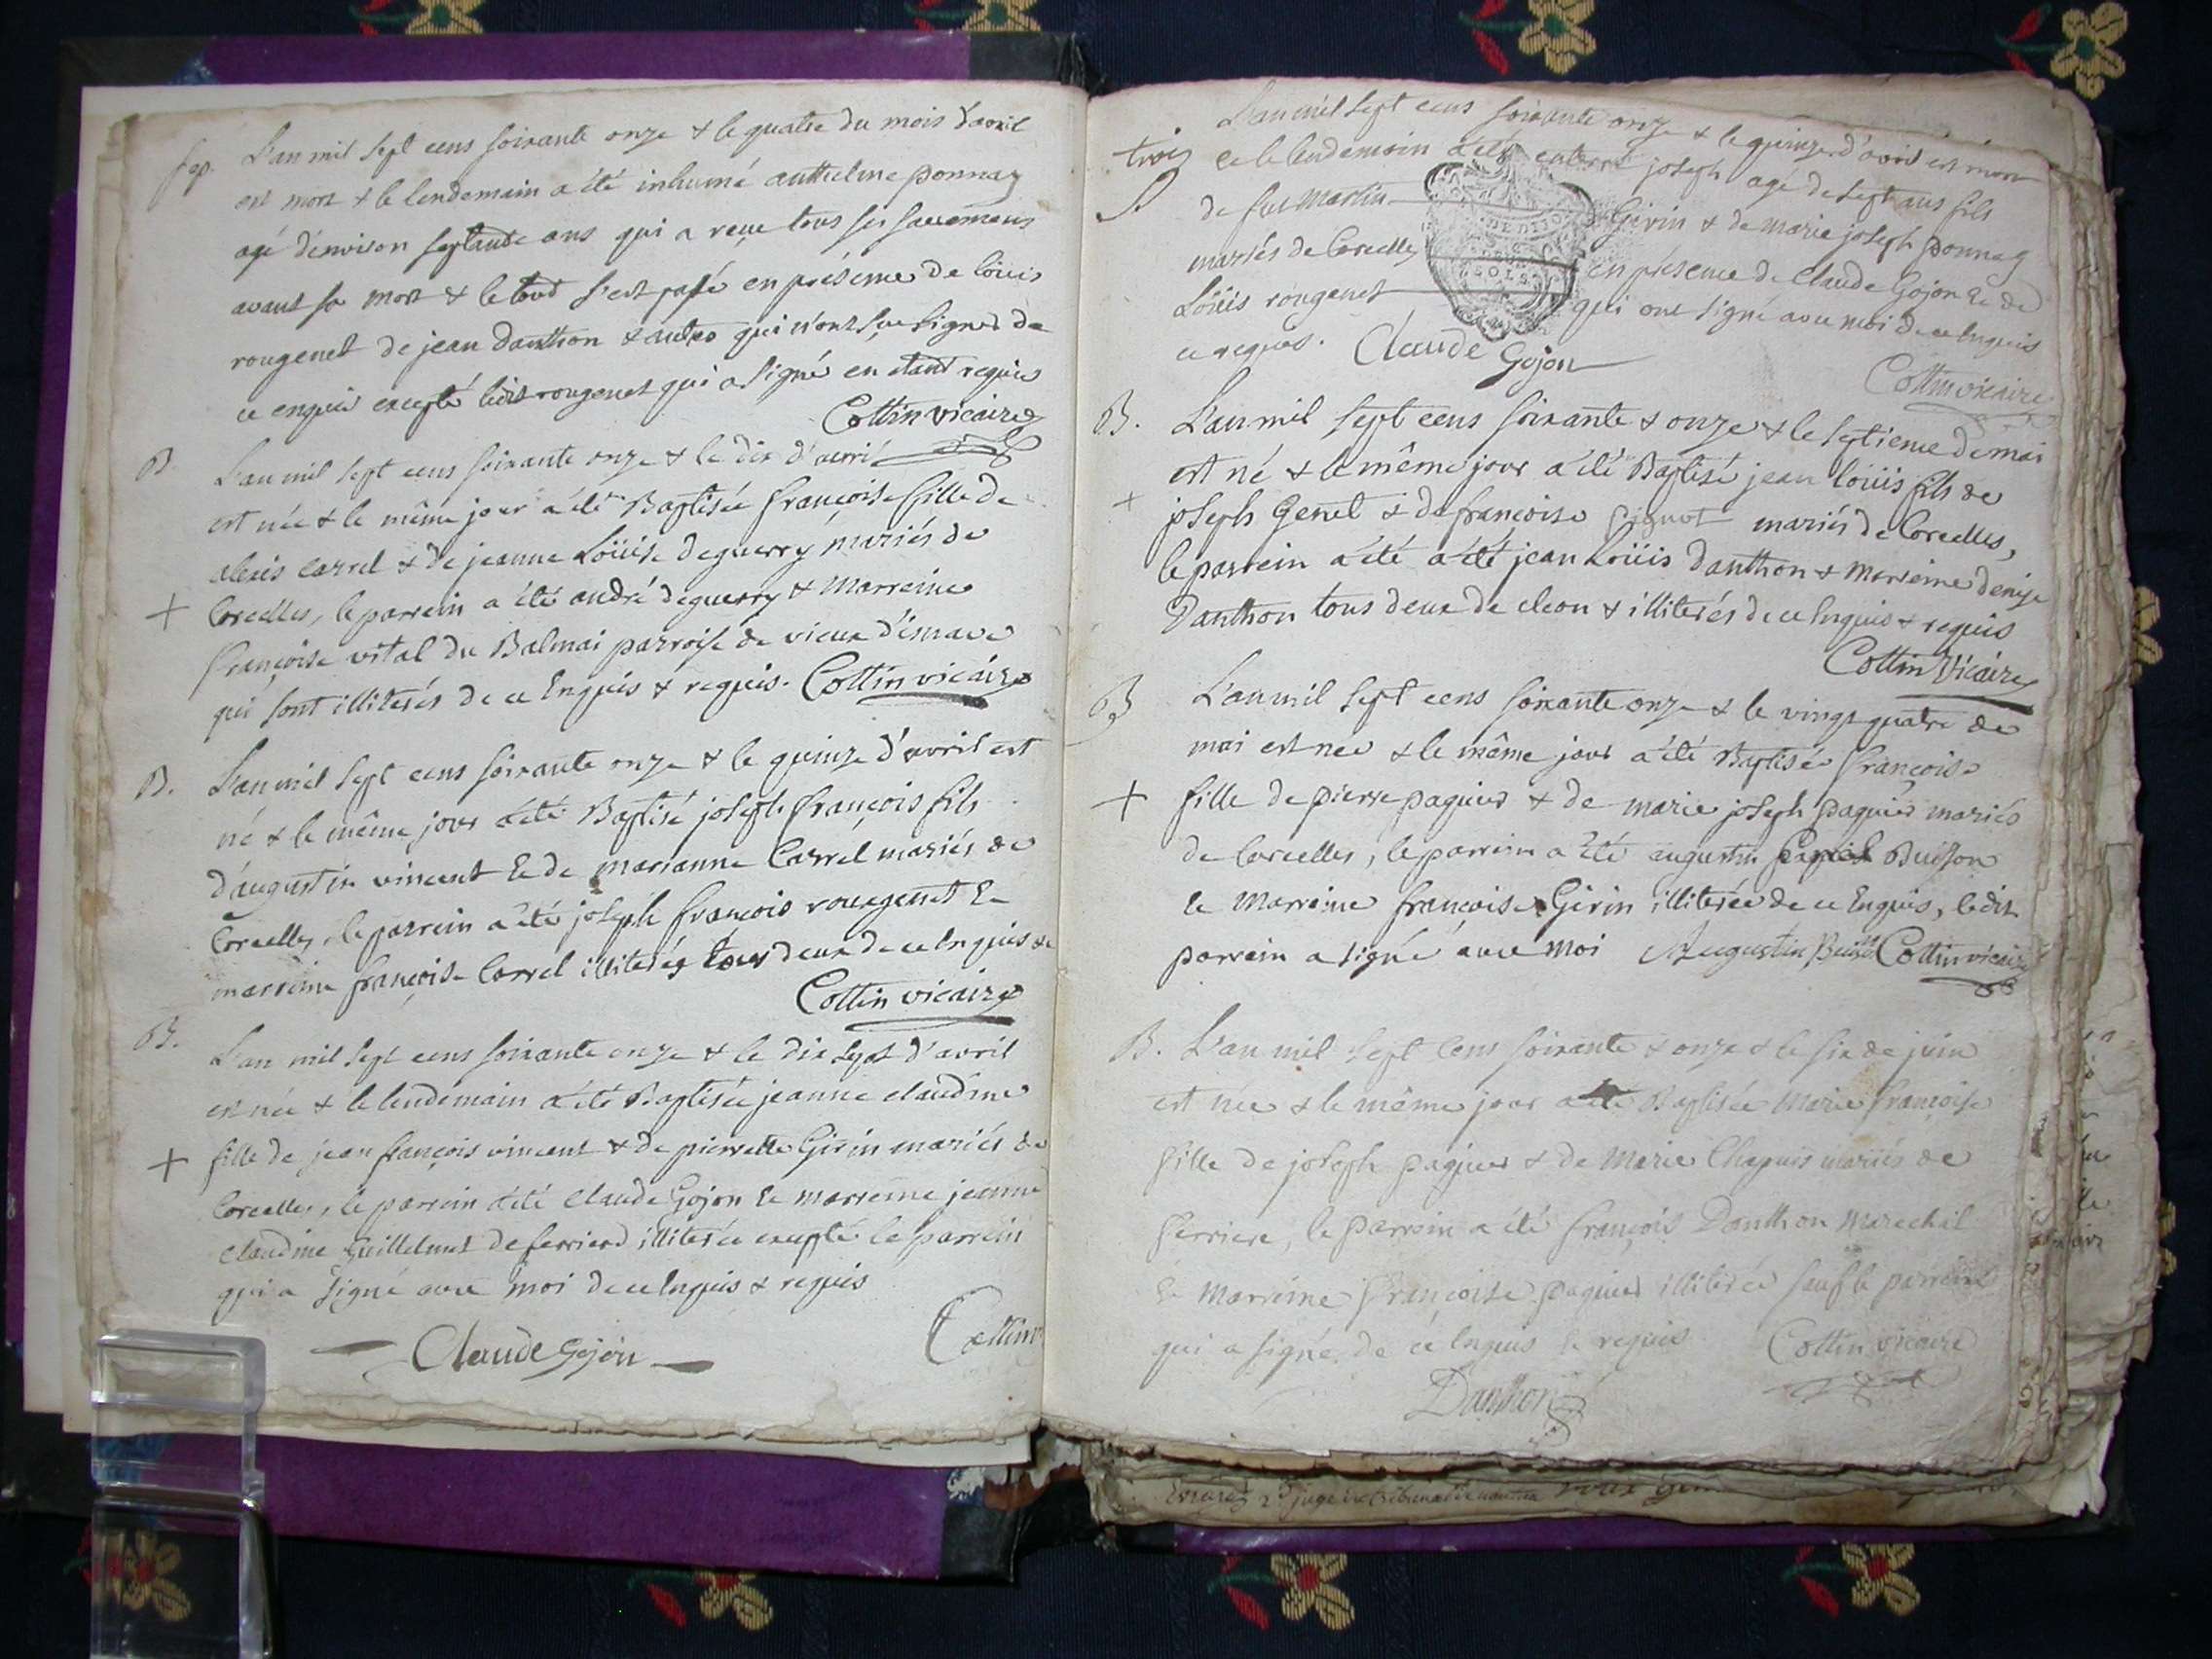 sep.
L'an mil sept cens soixante onze & le quatre du mois d'avril
est mort & le lendemain a été inhumé anthelme ponnaz
agé d'environ septante ans qui a reçue tous ses sacremens
avant sa mort & le tout s'est passé en présence de loüis
rougenet de jean danthon & autres qui n'ont sçu signer de
ce enquis excepté loüis rougenet qui a signé en étant requis
Cottin vicaire
B
L'an mil sept cens soixante onze & le dix d'avril
est née & le même jour a été Baptisée françoise fille de
alexis carrel & de jeanne Loüise deguerry mariés de
+ Corcelles, le parrein a été andré deguerry & Marreine
françoise vital du Balmai parroisse de vieux d'
qui sont illiterés de ce Enquis & requis. Cottin vicaire
B.
L'an mil sept cens soixante onze & le quinze d'avril est
né & le même jour a été Baptisé joseph françois fils
d'augustin vincent & de marianne Carrel mariés de
Corcelles, le parrein a été joseph françois rougenet &
marreine françoise Carrel illiterés tous deux de ce Enquis &
Cottin vicaire
B.
L'an mil sept cens soixante onze & le dix sept d'avril
est née & le lendemain a été Baptisée jeanne claudine
+ fille de jean françois vincent & de pierrette Girin mariés de
Corcelles, le parrein a été Claude Gojon & marreine jeanne
claudine Guillelmet de ferriere illiterée excepté le parrein
qui a signé avec moi de ce Enquis & requis
Claude Gojon
Cottin
trois
L'an mil sept cens soixante onze & le quinze d'avril est mort
& le lendemain a été enterré joseph agé de sept ans fils
S.
de feu Martin Girin & de marie joseph ponnaz
mariés de Corcelles en présence de Claude Gojon & de
Loüis rougenet qui ont signé avec moi de ce Enquis
et requis. Claude Gojon
Cottin vicaire
B.
L'an mil sept cens soixante & onze & le septieme de mai
est né & le même jour a été Baptisé jean loüis fils de
+ joseph Genet & de françoise mariés de Corcelles,
le parrein a été a été jean Loüis danthon & marreine denise
Danthon tous deux de cleon & illiterés de ce Enquis & requis
Cottin Vicaire
B
L'an mil sept cens soixante onze & le vingt quatre de
mai est nee & le même jour a été Baptisée françoise
+ fille de pierre paquier & de marie joseph paquier mariés
de Corcelles, le parrein a été augustin Buisson
& Marreine françoise Girin illiterée de ce Enquis, ledit
parrein a signé avec moi Augustin Buisson Cottin vicaire
B.
L'an mil sept cens soixante & onze & le six de juin
est née & le même jour a été Baptisée Marie françoise
fille de joseph paquier & de Marie Chapuis mariés de
ferriere, le parrein a été françois Danthon marechal
& marreine françoise paquier illiterée sauf le parrein
qui a signé de ce Enquis & requis Cottin vicaire
Danthon